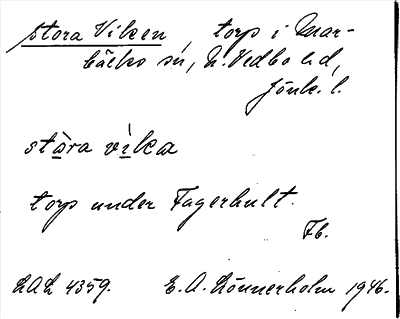 stora Viken, torp i Mar-
bäcks sn, N. Vedbo hd,
Jönk. l.
stàra vìka
torp under Fagerhult.
Fb.
LAL 4359. E. A. Lönnerholm 1946.